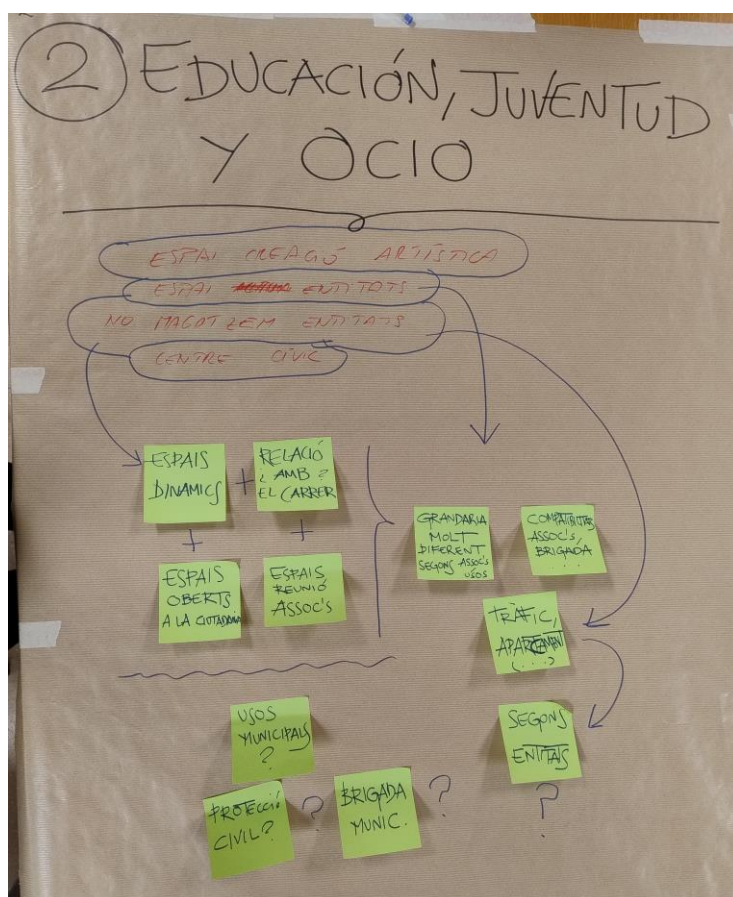 2 EDUCACIÓN, JUVENTUD
Y OCIO
ESPAI CREACIÓ ARTÍSTICA
ESPAI ENTITATS
NO MAGATZEM ENTITATS
CENTRE CÍVIC
ESPAIS
DINAMICS
+
RELACIÓ
¿ AMB ?
EL CARRER
+
+
ESPAIS
OBERTS
A LA CIUTADANIA
ESPAIS
REUNIÓ
ASSOC'S
GRANDARIA
MOLT
DIFERENT
SEGONS ASSOC'S
USOS
ASSOC'S,
BRIGADA
...
TRÀFIC,
APARCAMENT
(...)
SEGONS
ENTITATS
?
USOS
MUNICIPALS
?
PROTECCIÓ
CIVIL?
?
BRIGADA
MUNIC.
?